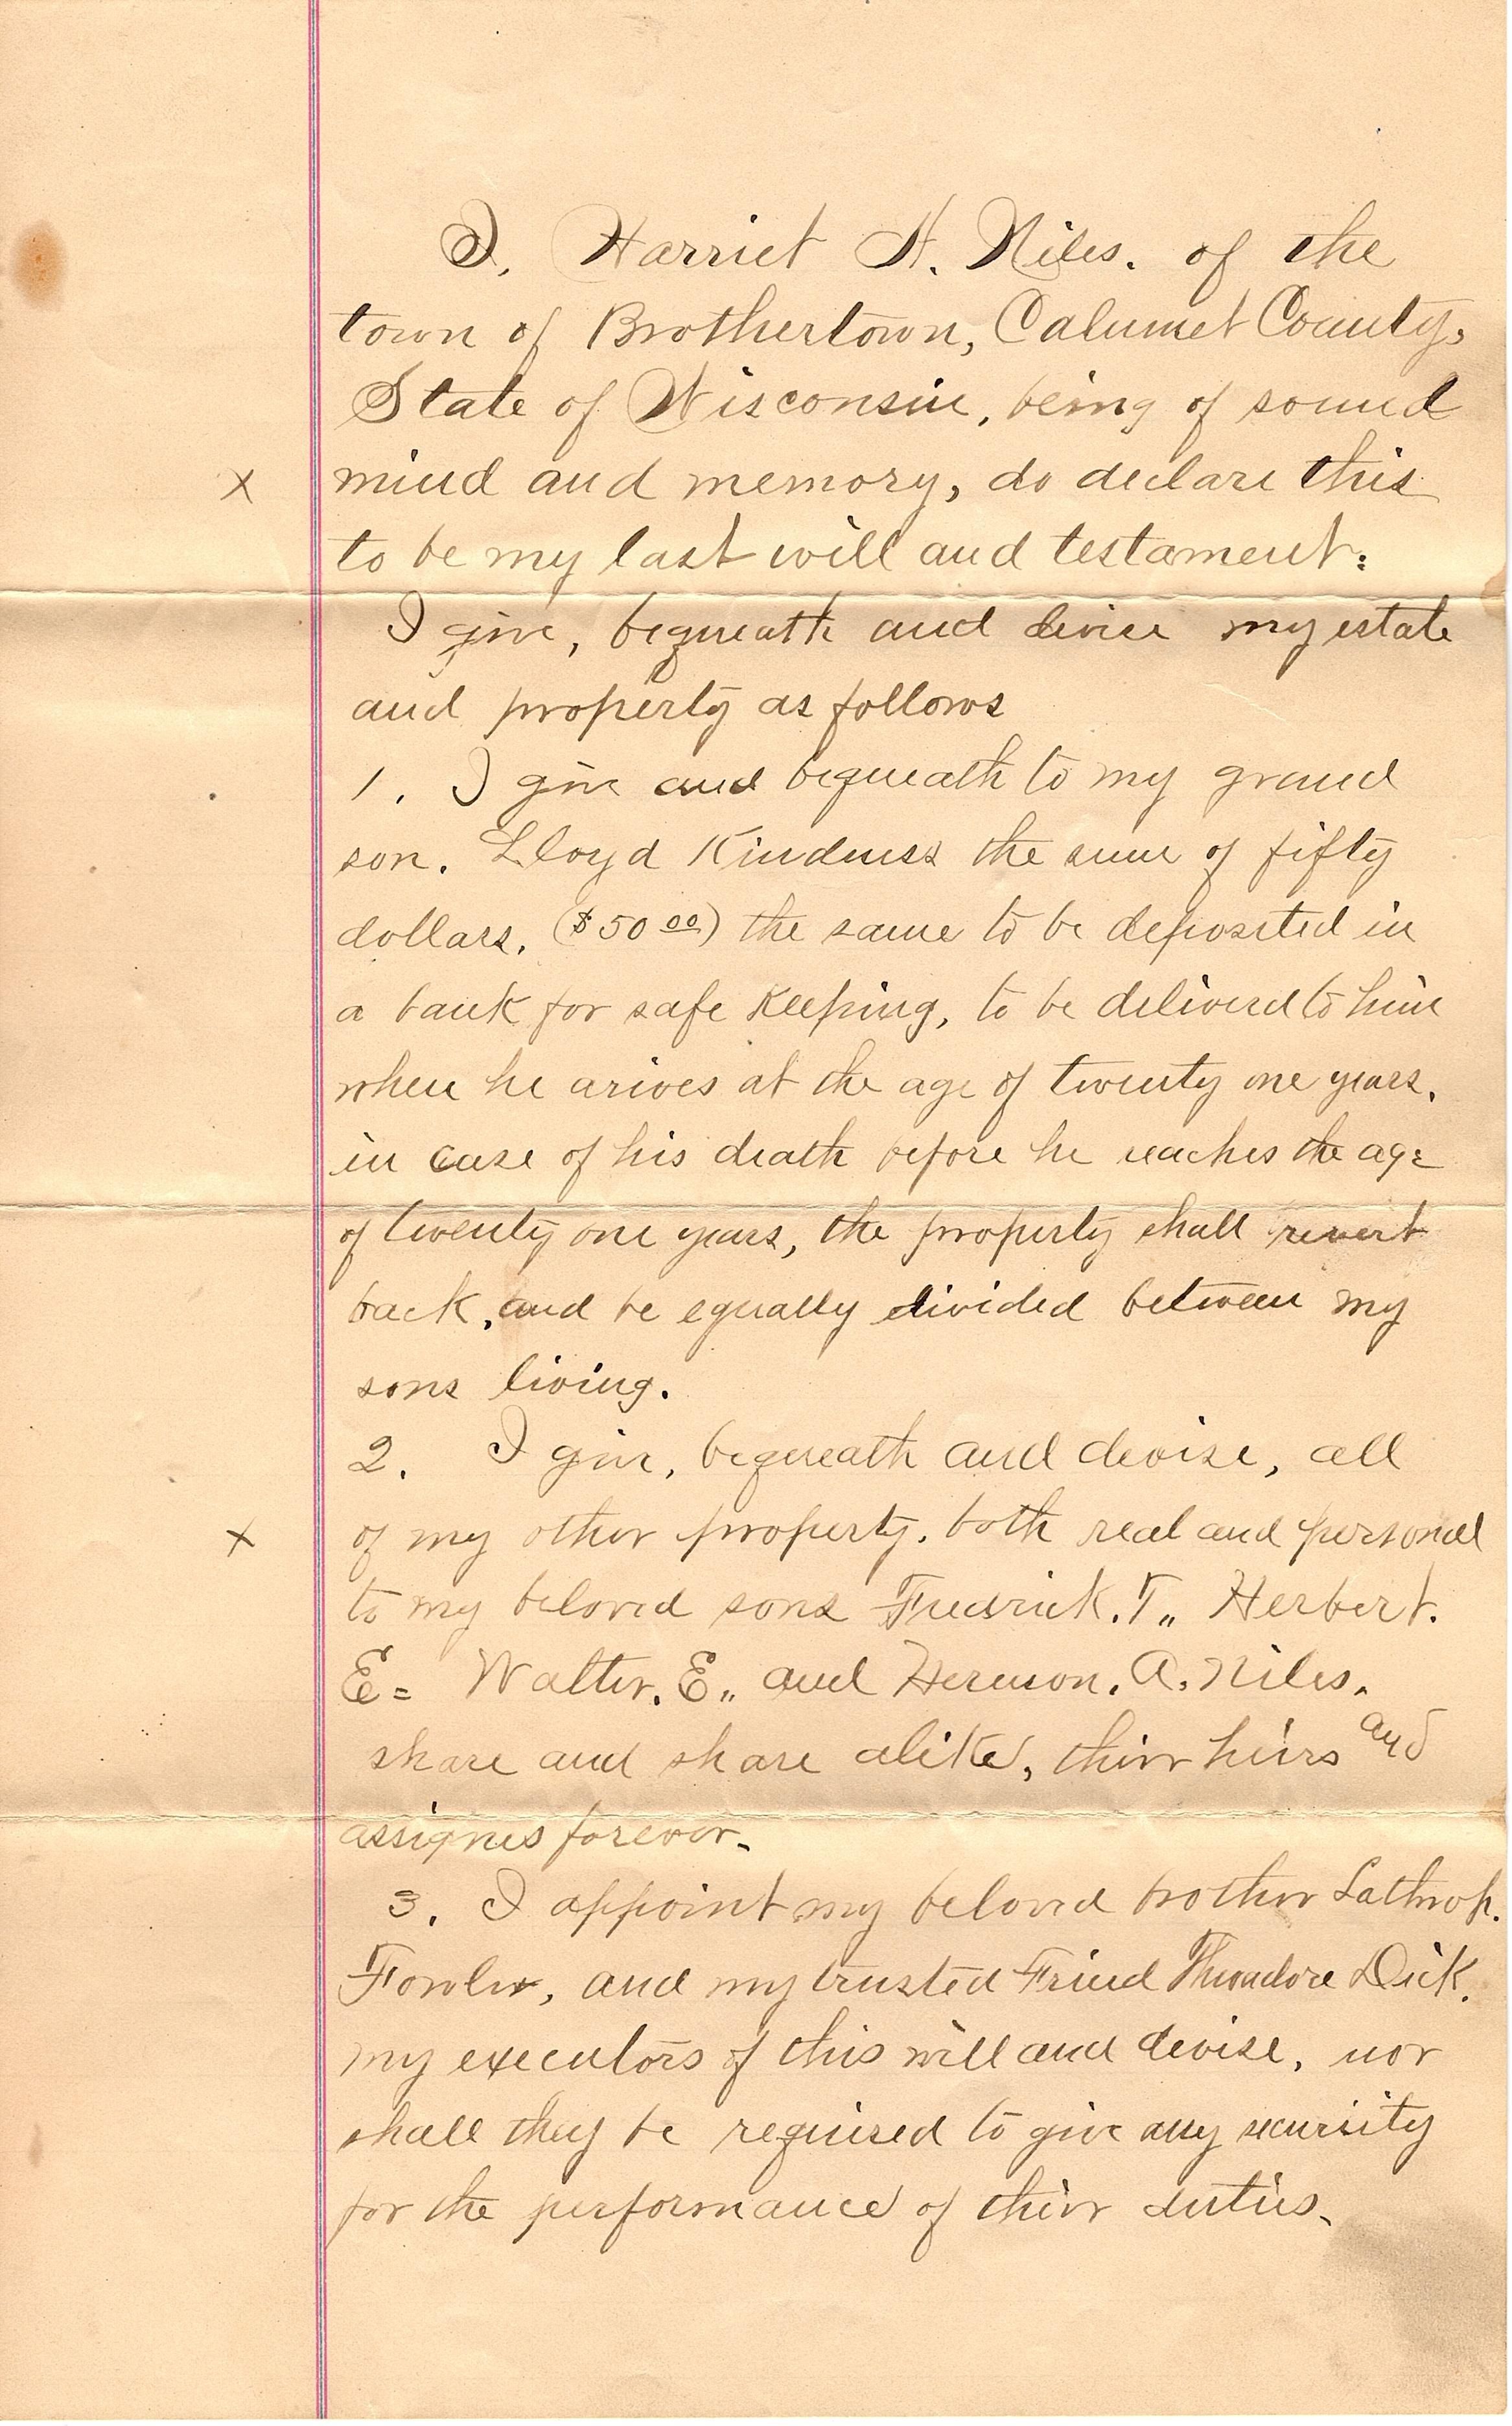 I, Harriet H. Niles. of the
town of Brothertown, Calumet County,
State of Wisconsin, being of sound
x mind and memory, do declare this
to be my last will and testament:
I give, bequeath and devise my estate
and property as follows
1. I give and bequeath to my grand
son. Lloyd Kindness the sum of fifty
dollars. ($50 00) the same to be deposited in
a bank for safe Keeping, to be deliverd to him
when he arives at the age of twenty one years.
in case of his death before he reaches the age
of twenty one years, the property shall revert
back, and be equally divided between my
sons living.
2. I give, bequeath and devise, all
x of my other property. both real and personal
to my beloved sons Fredrick. T,, Herbert.
E= Walter. E,, and Hermon. A. Niles.
share and share alike, thier heirs and
assignes forever.
3. I appoint my beloved brother Lathrop.
Fowler, and my trusted Friend Theodore Dick.
my executors of this will and devise, nor
shall they be required to give any security
for the performance of thier duties.